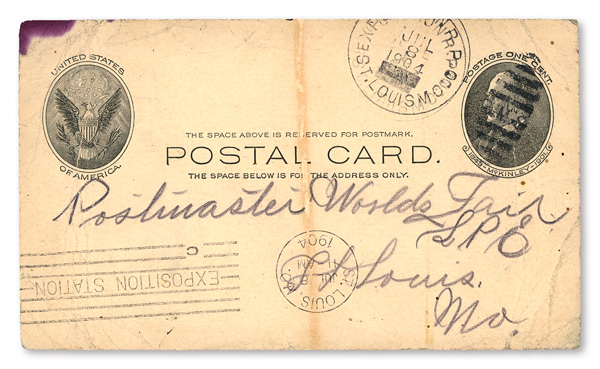 UNITED STATES
OF AMERICA.
JUL
8
1904
ST. LOUIS, MO.
POSTAGE ONE CENT.
1843-McKINLEY-1901
THE SPACE ABOVE IS RESERVED FOR POSTMARK.
POSTAL CARD.
THE SPACE BELOW IS FOR THE ADDRESS ONLY.
Postmaster Worlds Fair
L P E
St Louis.
Mo.
ST. LOUIS, MO.
1904
C
EXPOSITION STATION